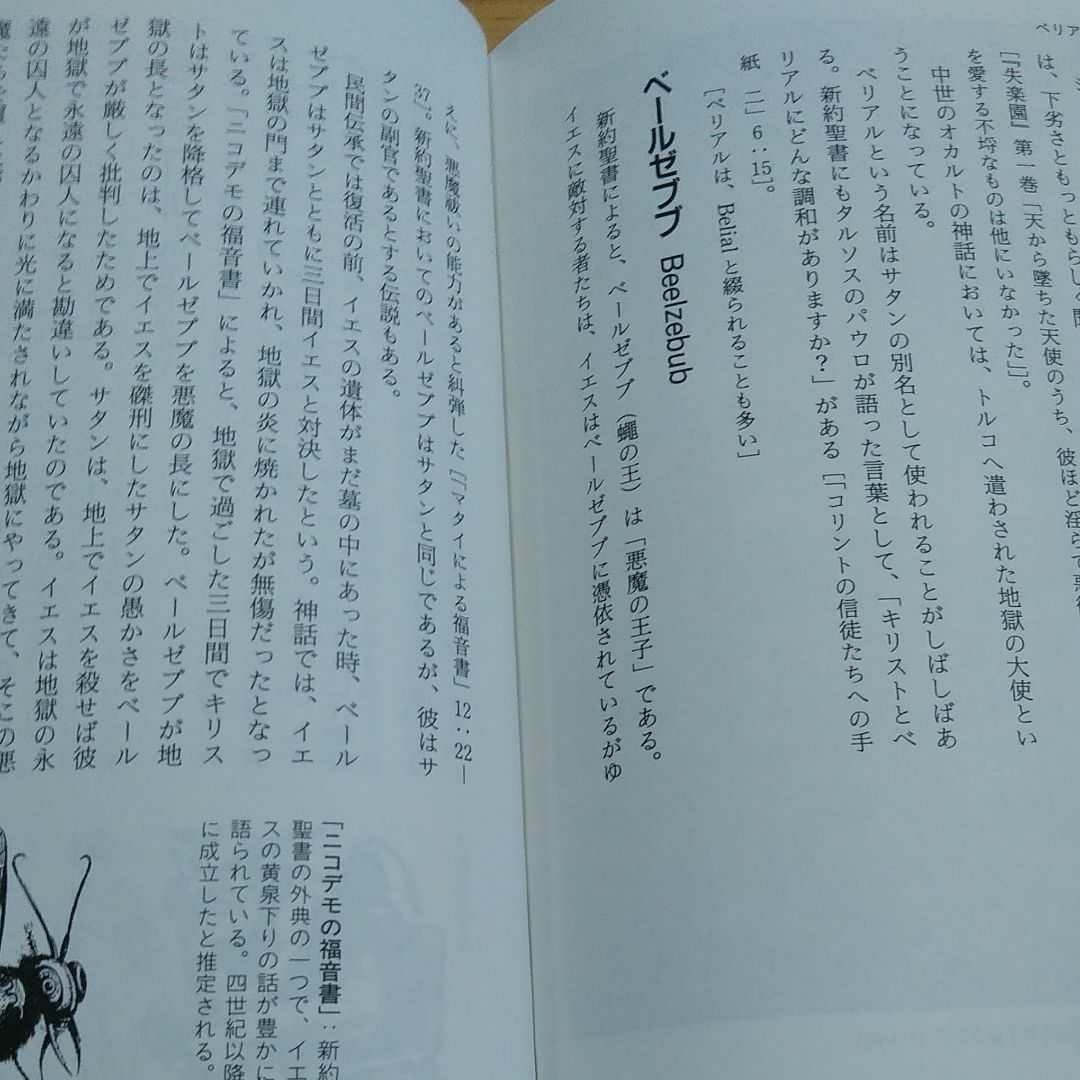 ベリア
は、下劣さともっともらし
[『失楽園』第一巻「天から墜ちた天使のうち、彼ほど淫らで悪
を愛する不埒なものは他にいなかった」]。
中世のオカルトの神話においては、トルコへ遣わされた地獄の大使とい
うことになっている。
ベリアルという名前はサタンの別名として使われることがしばしばあ
る。新約聖書にもタルソスのパウロが語った言葉として、「キリストとベ
リアルにどんな調和がありますか?」がある[「コリントの信徒たちへの手
紙 二」6:15]。
[ベリアルは、Belialと綴られることも多い]
ベールゼブブ Beelzebub
新約聖書によると、ベールゼブブ(蠅の王)は「悪魔の王子」である。
イエスに敵対する者たちは、イエスはベールゼブブに憑依されているがゆ
えに、悪魔祓いの能力があると糾弾した[「マタイによる福音書」12:22―
37]。新約聖書においてのベールゼブブはサタンと同じであるが、彼はサ
タンの副官であるとする伝説もある。
民間伝承では復活の前、イエスの遺体がまだ墓の中にあった時、ベール
ゼブブはサタンとともに三日間イエスと対決したという。神話では、イエ
スは地獄の門まで連れていかれ、地獄の炎に焼かれたが無傷だったとなっ
ている。「ニコデモの福音書」によると、地獄で過ごした三日間でキリス
トはサタンを降格してベールゼブブを悪魔の長にした。ベールゼブブが地
獄の長となったのは、地上でイエスを磔刑にしたサタンの愚かさをベール
ゼブブが厳しく批判したためである。サタンは、地上でイエスを殺せば彼
が地獄で永遠の囚人になると勘違いしていたのである。イエスは地獄の永
遠の囚人となるかわりに光に満たされながら地獄にやってきて、そこの悪
「ニコデモの福音書」:新約
聖書の外典の一つで、イエ
スの黄泉下りの話が豊かに
語られている。四世紀以降
に成立したと推定される。